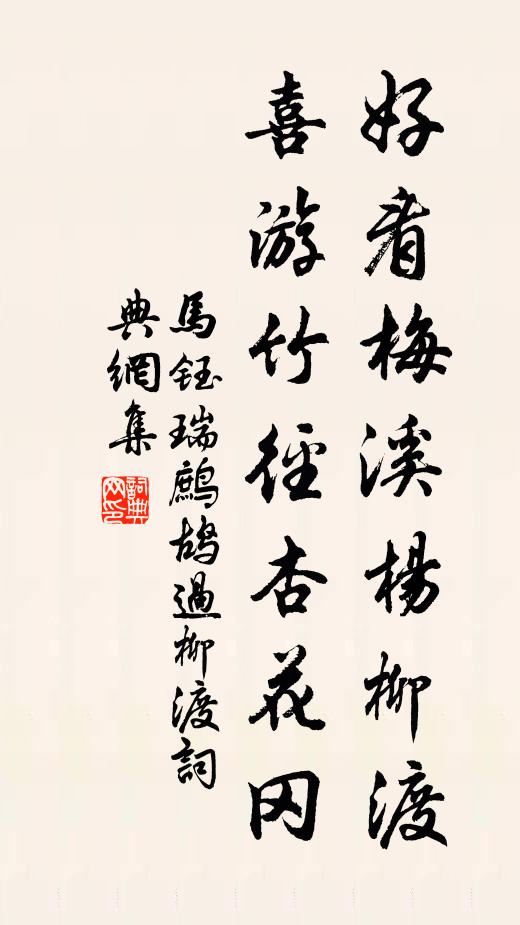 好看梅溪楊柳渡
喜游竹徑杏花冈
馬鈺瑞鷓鴣過柳渡詞
典網集
詞典
网印